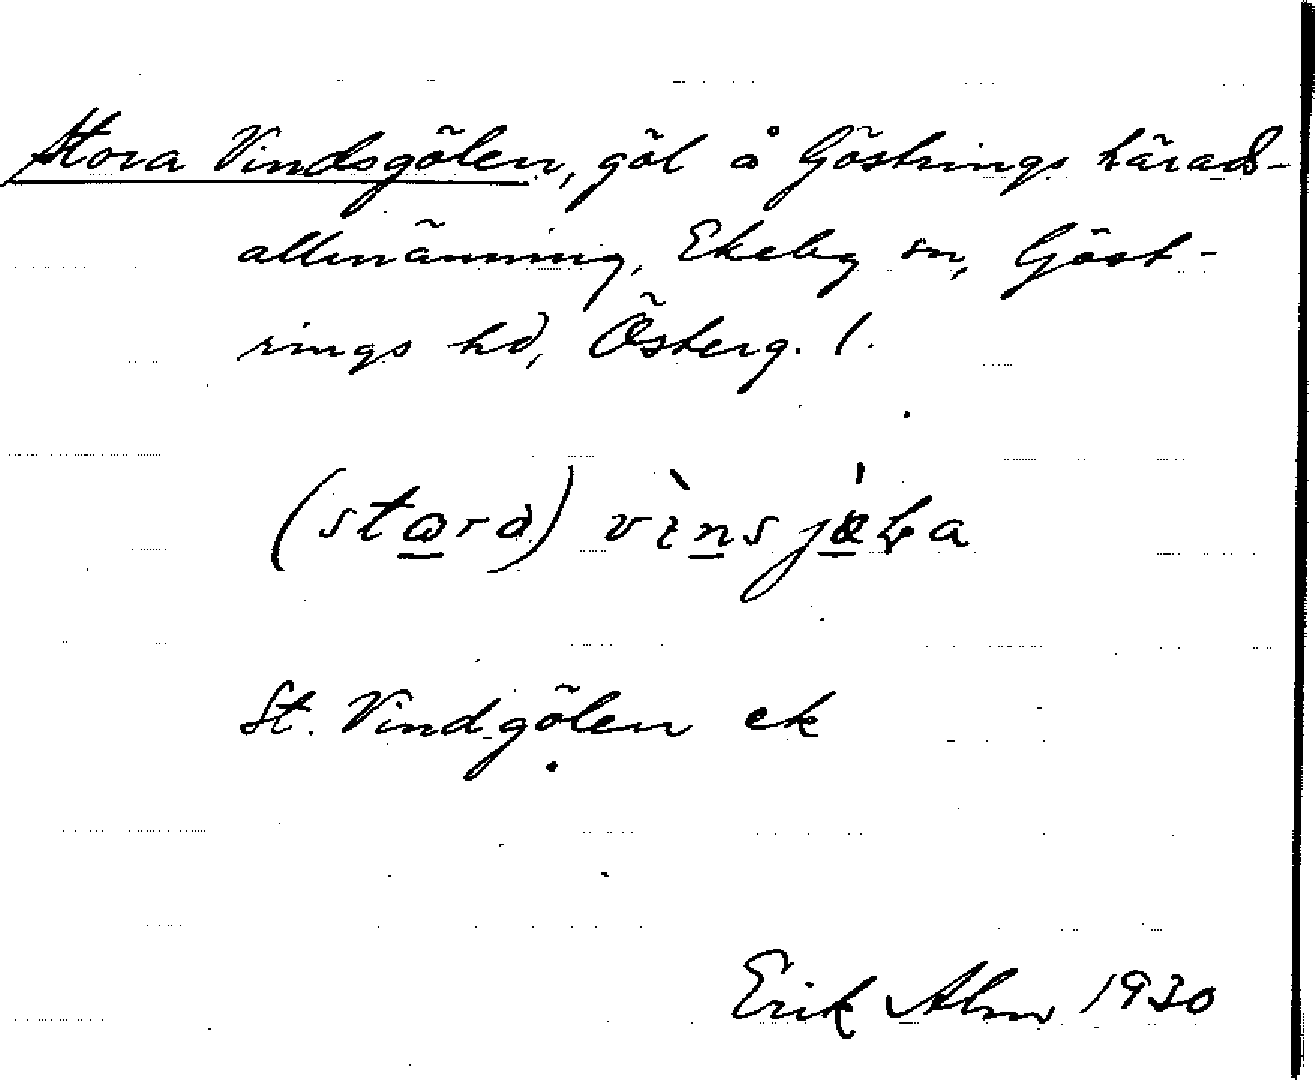 Stora Vindsgölen, göl å Göstrings härads-
allmänning, Ekeby sn, Göst-
rings hd, Österg. l.
(stora)
St. Vindgölen ek
Erik Alm 1930